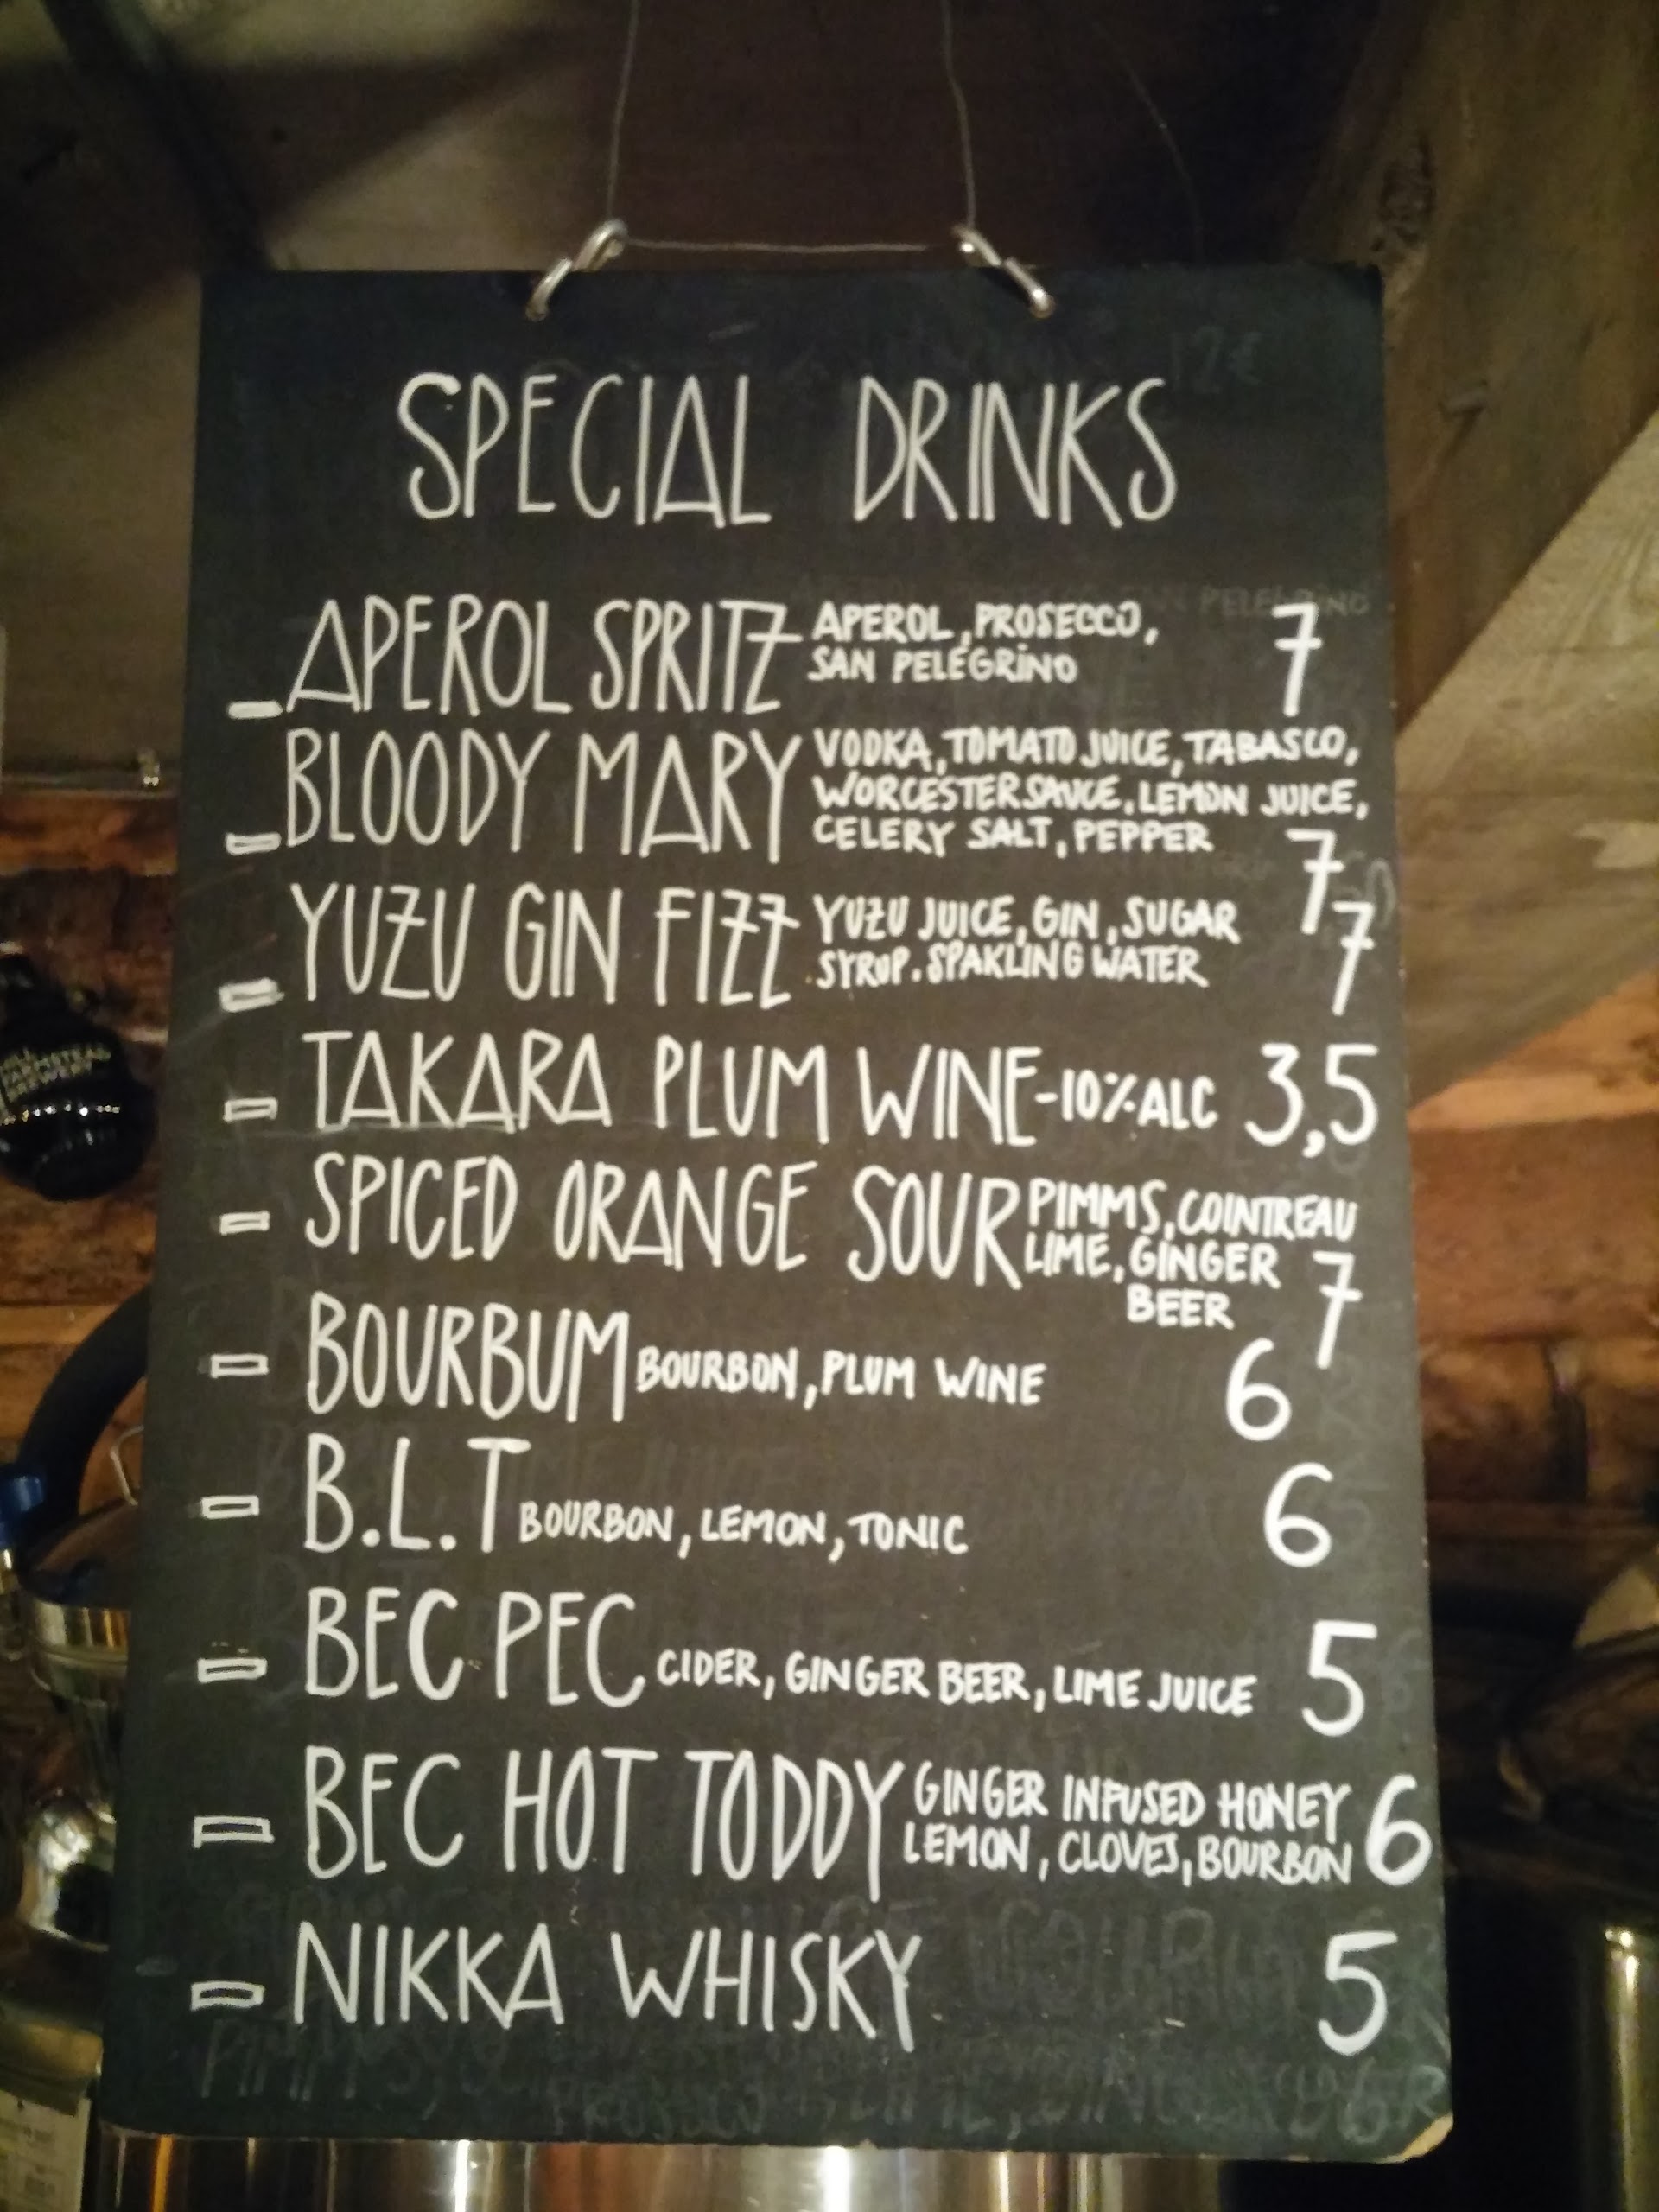 SPECIAL DRINKS
- APEROL SPRITZ APEROL, PROSECCO, 7
SAN PELEGRINO
- BLOODY MARY VODKA, TOMATO JUICE, TABASCO,
WORCESTER SAUCE, LEMON JUICE,
CELERY SALT, PEPPER 7
- YUZU GIN FIZZ YUZU JUICE, GIN, SUGAR 7
SYRUP. SPAKLING WATER
- TAKARA PLUM WINE -10% ALC 3,5
- SPICED ORANGE SOUR PIMMS, COINTREAU
LIME, GINGER 7
BEER
- BOURBUM BOURBON, PLUM WINE 6
- B.L.T BOURBON, LEMON, TONIC 6
- BEC PEC CIDER, GINGER BEER, LIME JUICE 5
- BEC HOT TODDY GINGER INFUSED HONEY 6
LEMON, CLOVES, BOURBON
- NIKKA WHISKY 5
HILL
FARMSTEAD
BREWERY